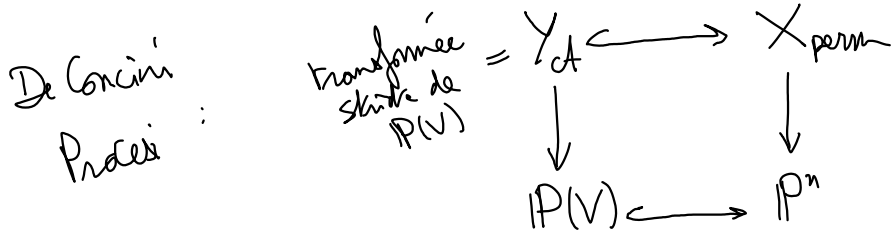 De Concini
Procesi :
transformée
stricte de
P(V)
= Y_A ↪ X_perm
↓ ↓
ℙ(V) ↪ ℙ^n